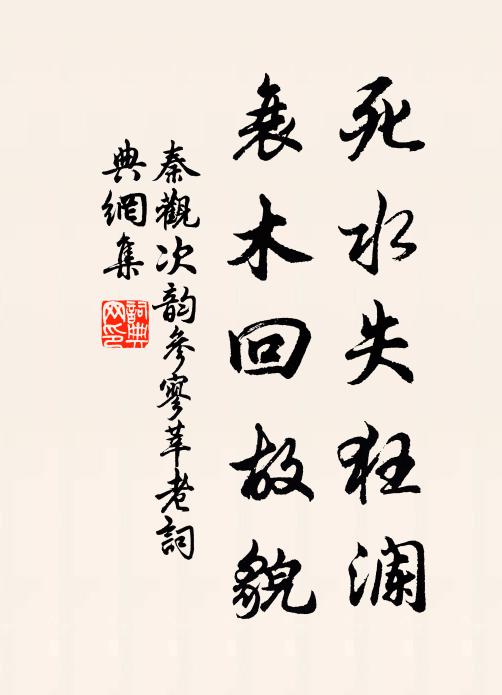 死水失狂澜
衰木回故貌
秦觀次韵參寥莘老詞
典網集
詞典網印